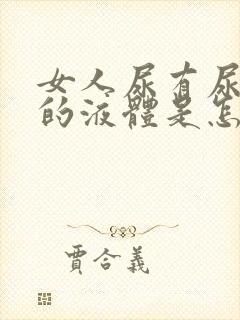 女人尿有尿
的液體是怎
賈合義